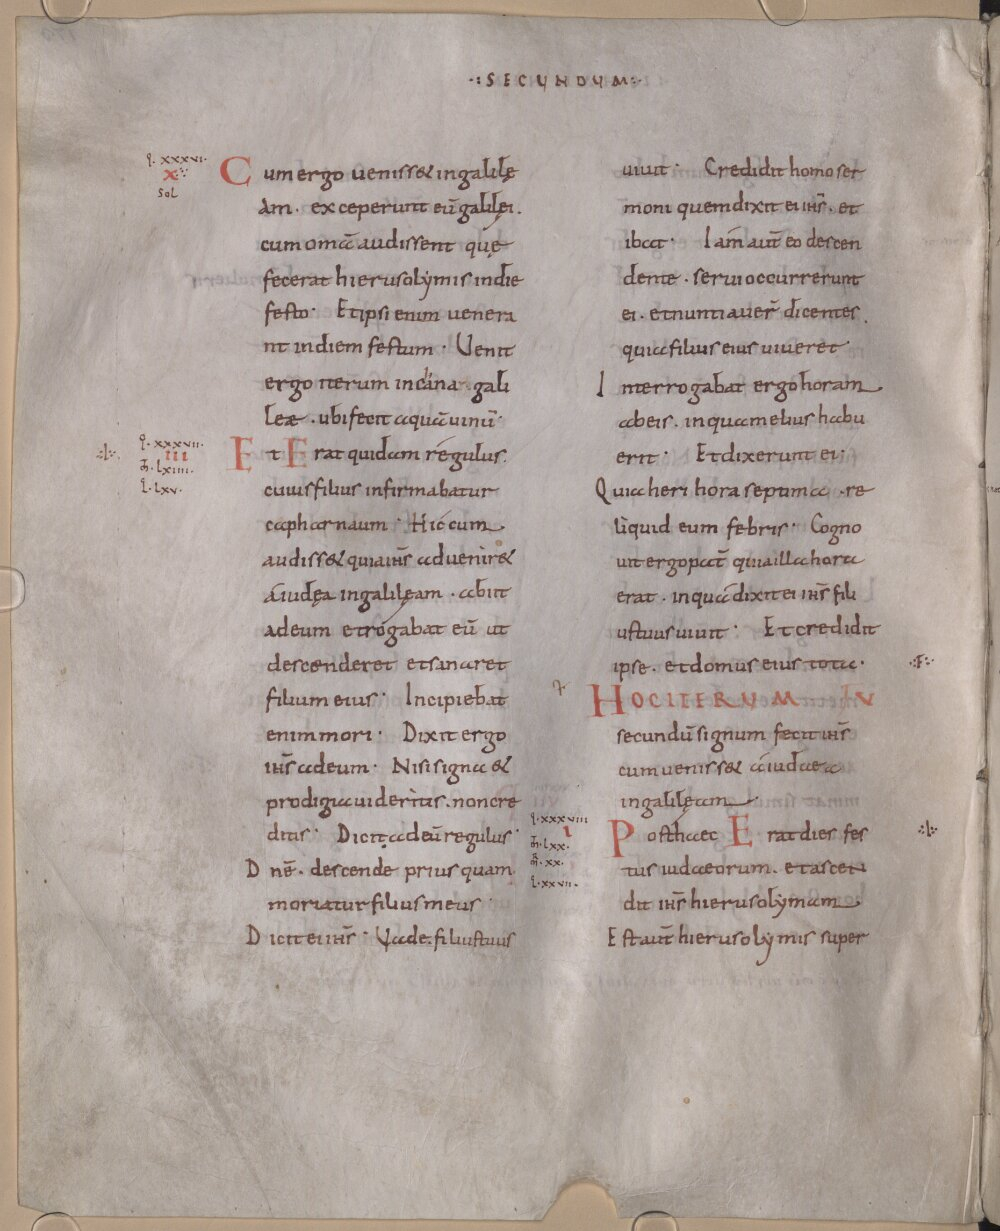 ·:SECUNDUM:·
I. xxxvi.
X
Sol
Cum ergo uenisset ingalilę
am. exceperunt eū galilei.
cum omā audissent quę
fecerat hierusolýmis indie
festo· Etipsi enim uenera
nt indiem festum· Uenit
ergo iterum in chana gali
leæ. ubi fecit aquā uinū·
I. xxxvii.
III
m̄. lxiiii.
L. lxv.
Et Erat quidam régulus.
cuius filius infirmabatur
capharnaum· Hic cum
audisset quia ih̄s aduenir&
áiudęa ingalilęam. abiit
adeum et rogabat eū ut
descenderet etsanaret
filium eius· Incipiebat
enim mori· Dixit ergo
ih̄s adeum· Nisi signa &
prodigia uideritis. noncre
ditis· Dicit adeū regulus·
Dn̄e. descende prius quam
moriatur filius meus·
Dicit ei ih̄s· Uade. filius tuus
uiuit· Credidit homo ser
moni quem dixit ei ih̄s. et
ibat· Iam aut̄ eo descen
dente. serui occurrerunt
ei. et nuntiauer̄ dicentes.
quia filius eius uiueret·
Interrogabat ergo horam
abeis. in qua melius habu
erit· Et dixerunt ei·
Quia heri hora septima. re
liquid eum febris· Cogno
uit ergo pat̄ quia illa hora
erat. in quā dixit ei ih̄s fili
us tuus uiuit· Et credidit
ipse. et domus eius tota.
·:F:·
HOC ITERUM IN
secundū signum fecit ih̄s
cum uenisset á iudaea
ingalilęam
I. xxxviii
I
m̄. lxx.
m̄. xx.
L. xxvii.
Post haec Erat dies fes
tus iudaeorum. et ascen
dit ih̄s hierusolýmam
Est aut̄ hierusolýmis super